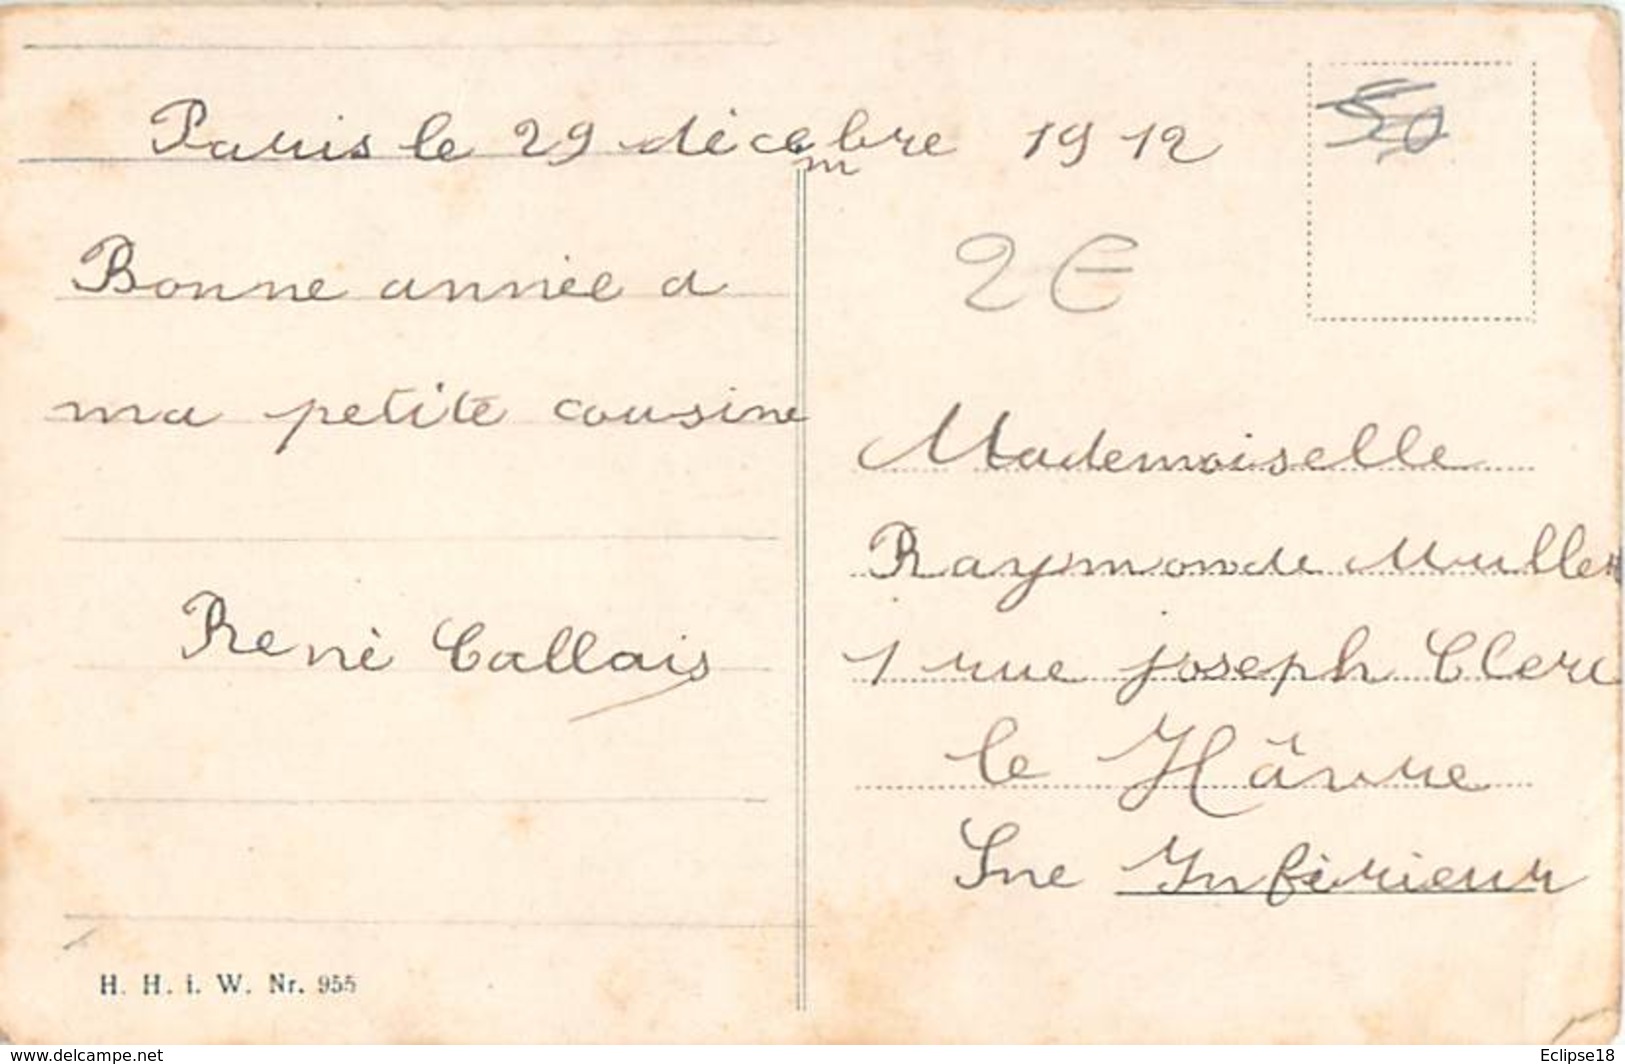 Paris le 29 décembre 1912
50
2€
Bonne année a
ma petite cousine
René Callais
Mademoiselle
Raymonde Muller
1 rue joseph Clerc
le Hâvre
Sne Inférieur
H. H. i. W. Nr. 955
www.delcampe.net
Eclipse18